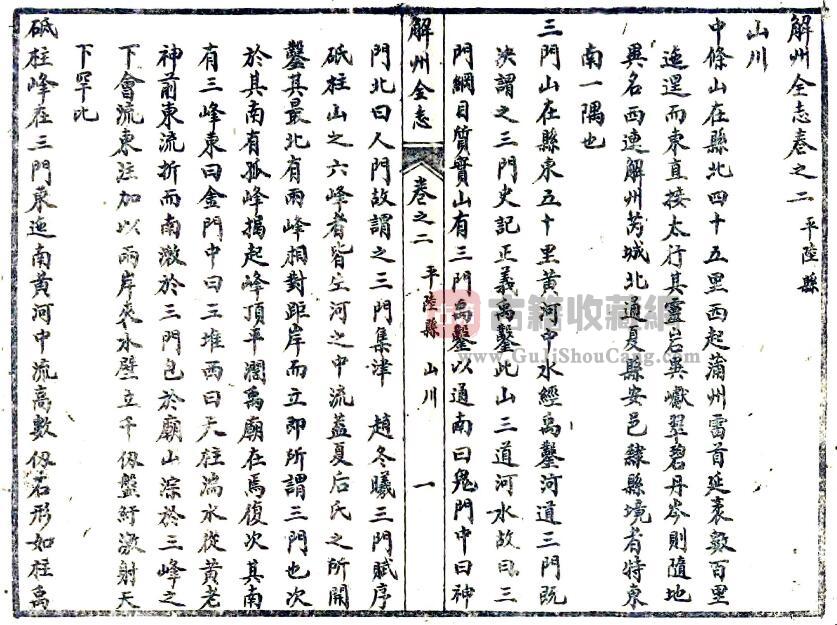 解州全志卷之二 平陸縣
山川
中條山在縣北四十五里西起蒲州雷首延袤數百里
迤邐而東直接太行其靈岩異巘翠碧丹岑則隨地
異名西連解州芮城北通夏縣安邑隸縣境者特東
南一隅也
三門山在縣東五十里黃河中水經禹鑿河道三門既
決謂之三門史記正義禹鑿此山三道河水故曰三
門綱目質實山有三門禹鑿以通南曰鬼門中曰神
解州全志 卷之二 平陸縣 山川 一
門北曰人門故謂之三門集津 趙冬曦三門賦序
砥柱山之六峰者皆生河之中流蓋夏后氏之所開
鑿其最北有兩峰相對距岸而立即所謂三門也次
於其南有孤峰揭起峰頂平濶禹廟在焉復次其南
有三峰東曰金門中曰三堆西曰天柱湍水從黃老
神前東流折而南激於三門包於廟山淙於三峰之
下會流東注加以兩岸夾水壁立千仞盤紆激射天
下罕比
砥柱峰在三門東迤南黃河中流高數仞石形如柱禹
古籍收藏網
www.GuJiShouCang.com